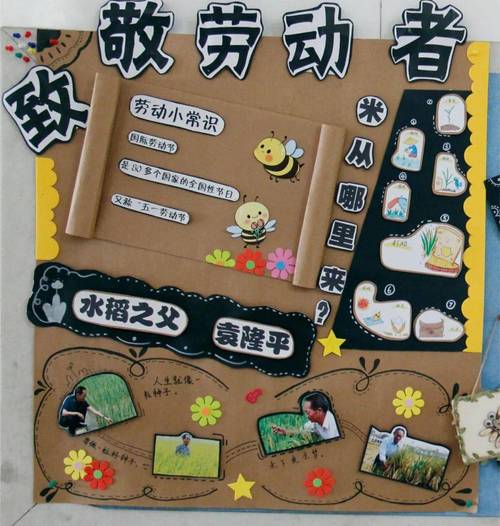 致敬劳动者
劳动小常识
国际劳动节
是80多个国家的全国性节日
又称"五一劳动节
米从哪里来?
①
②
③
④
⑤
⑥
⑦
水稻之父
袁隆平
人生就像一
粒种子。